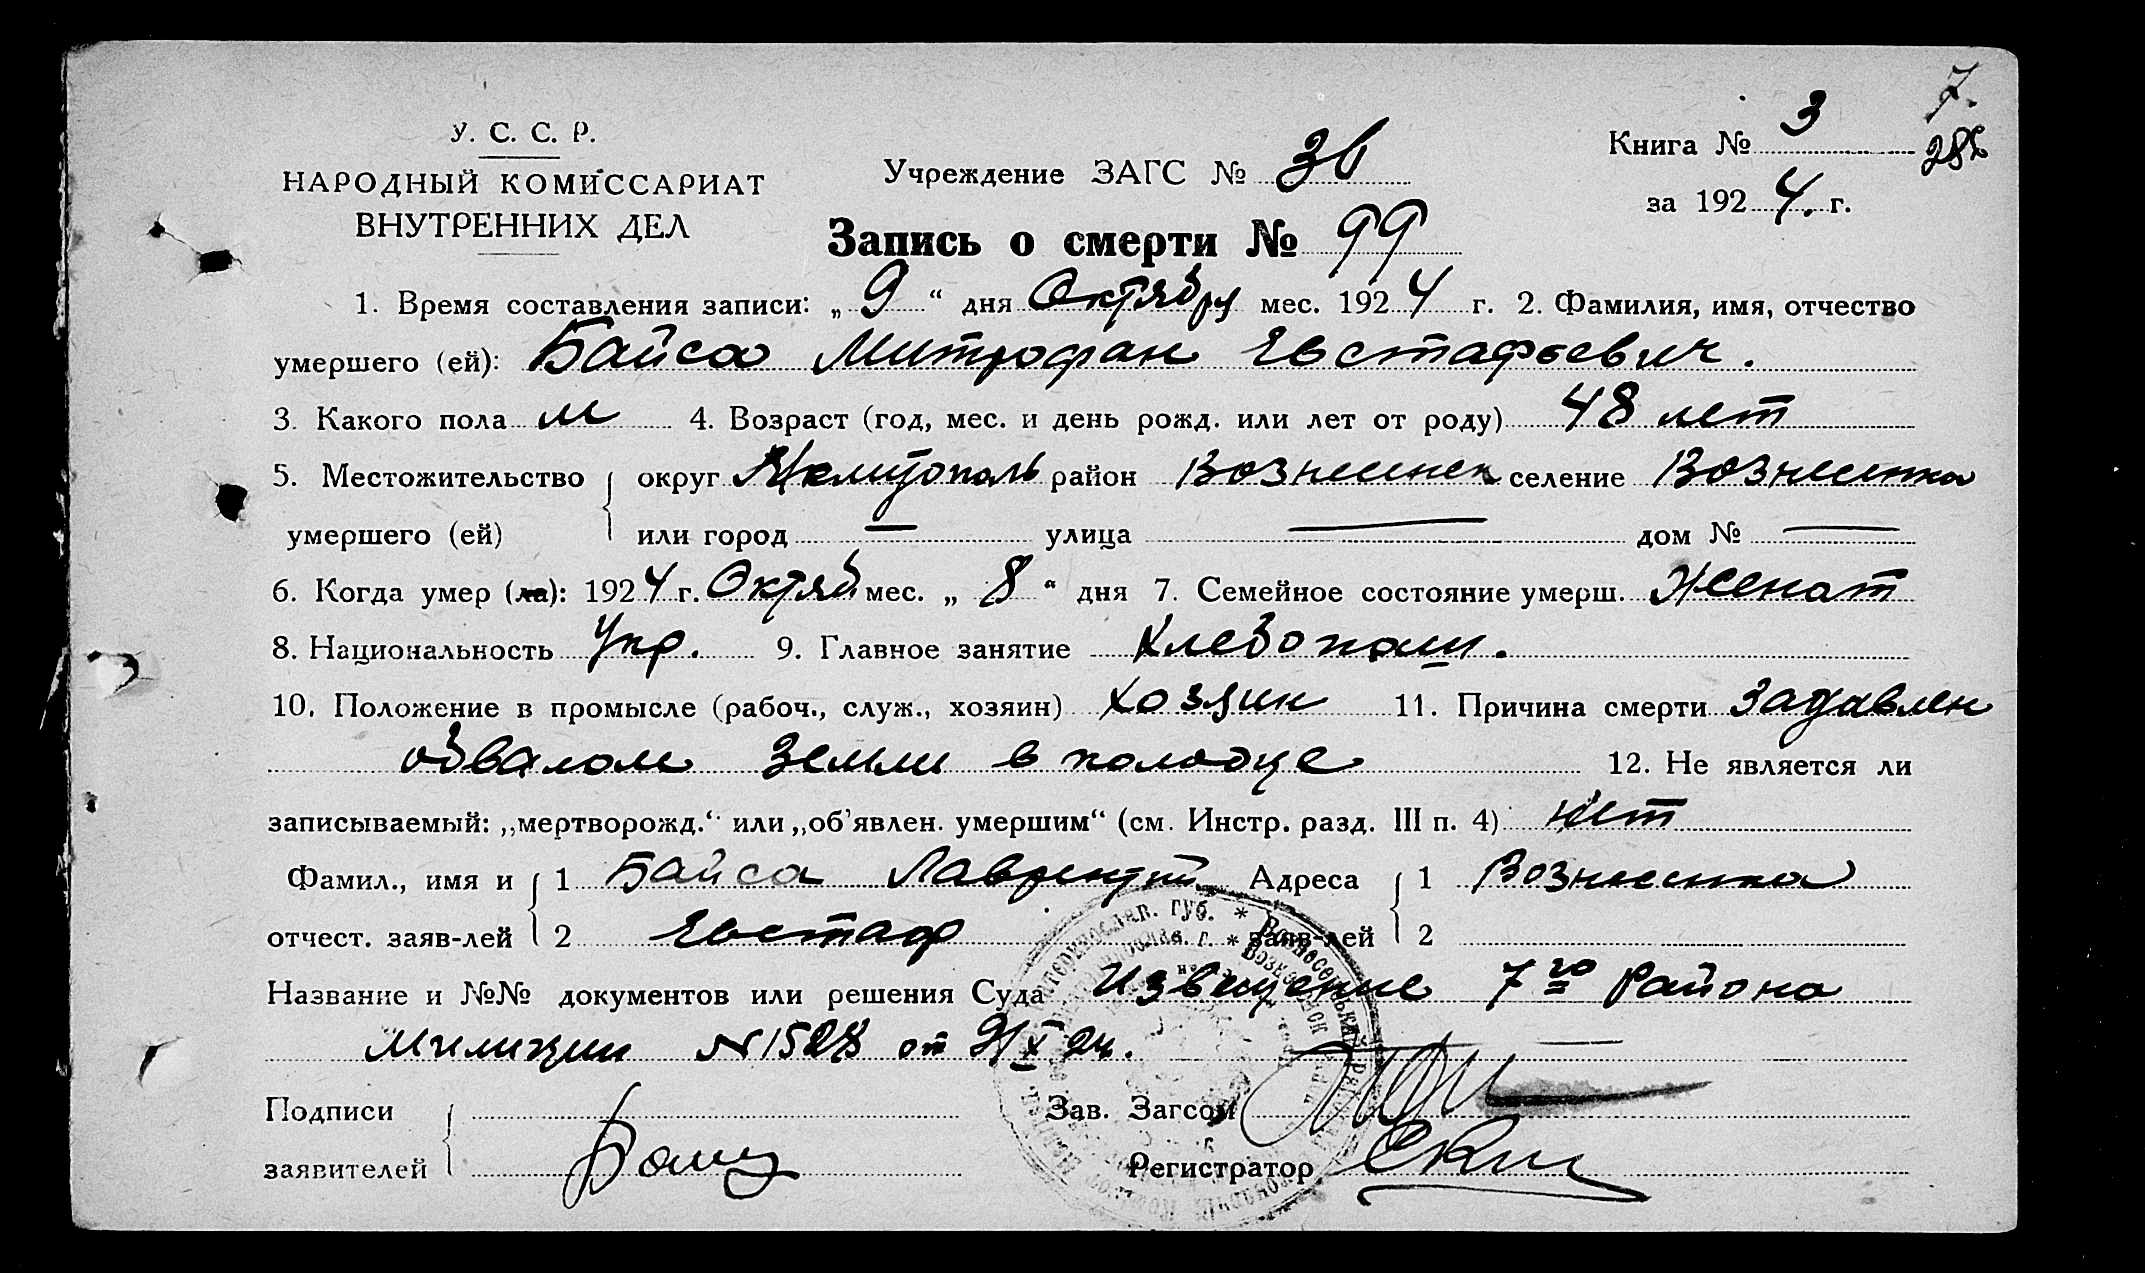 7.
282
У. С. С. Р.
НАРОДНЫЙ КОМИССАРИАТ
ВНУТРЕННИХ ДЕЛ
Учреждение ЗАГС №
Книга № 3
за 1924 г.
Запись о смерти № 99
1. Время составления записи: „9“ дня Октября мес. 1924 г. 2. Фамилия, имя, отчество
умершего (ей): Байса Митрофан Евстафьевич.
3. Какого пола м 4. Возраст (год, мес. и день рожд. или лет от роду) 48 лет
5. Местожительство округ Мелитополь район Вознесенск селение Вознесенка
умершего (ей) или город — улица — дом № —
6. Когда умер (ла): 1924 г. Октяб мес. „8“ дня 7. Семейное состояние умерш. Женат
8. Национальность Укр. 9. Главное занятие Хлебопаш.
10. Положение в промысле (рабоч., служ., хозяин) хозяин 11. Причина смерти Задавлен
обвалом земли в колодце 12. Не является ли
записываемый: „мертворожд.“ или „об’явлен. умершим“ (см. Инстр. разд. III п. 4) нет
Фамил., имя и 1 Байса Лаврентий Адреса 1 Вознесенка
отчест. заяв-лей 2 Евстаф заяв-лей 2
Название и №№ документов или решения Суда Извещение 7го Района
Милиции № 1528 от 9/X 24.
Подписи Зав. Загсом
заявителей Регистратор